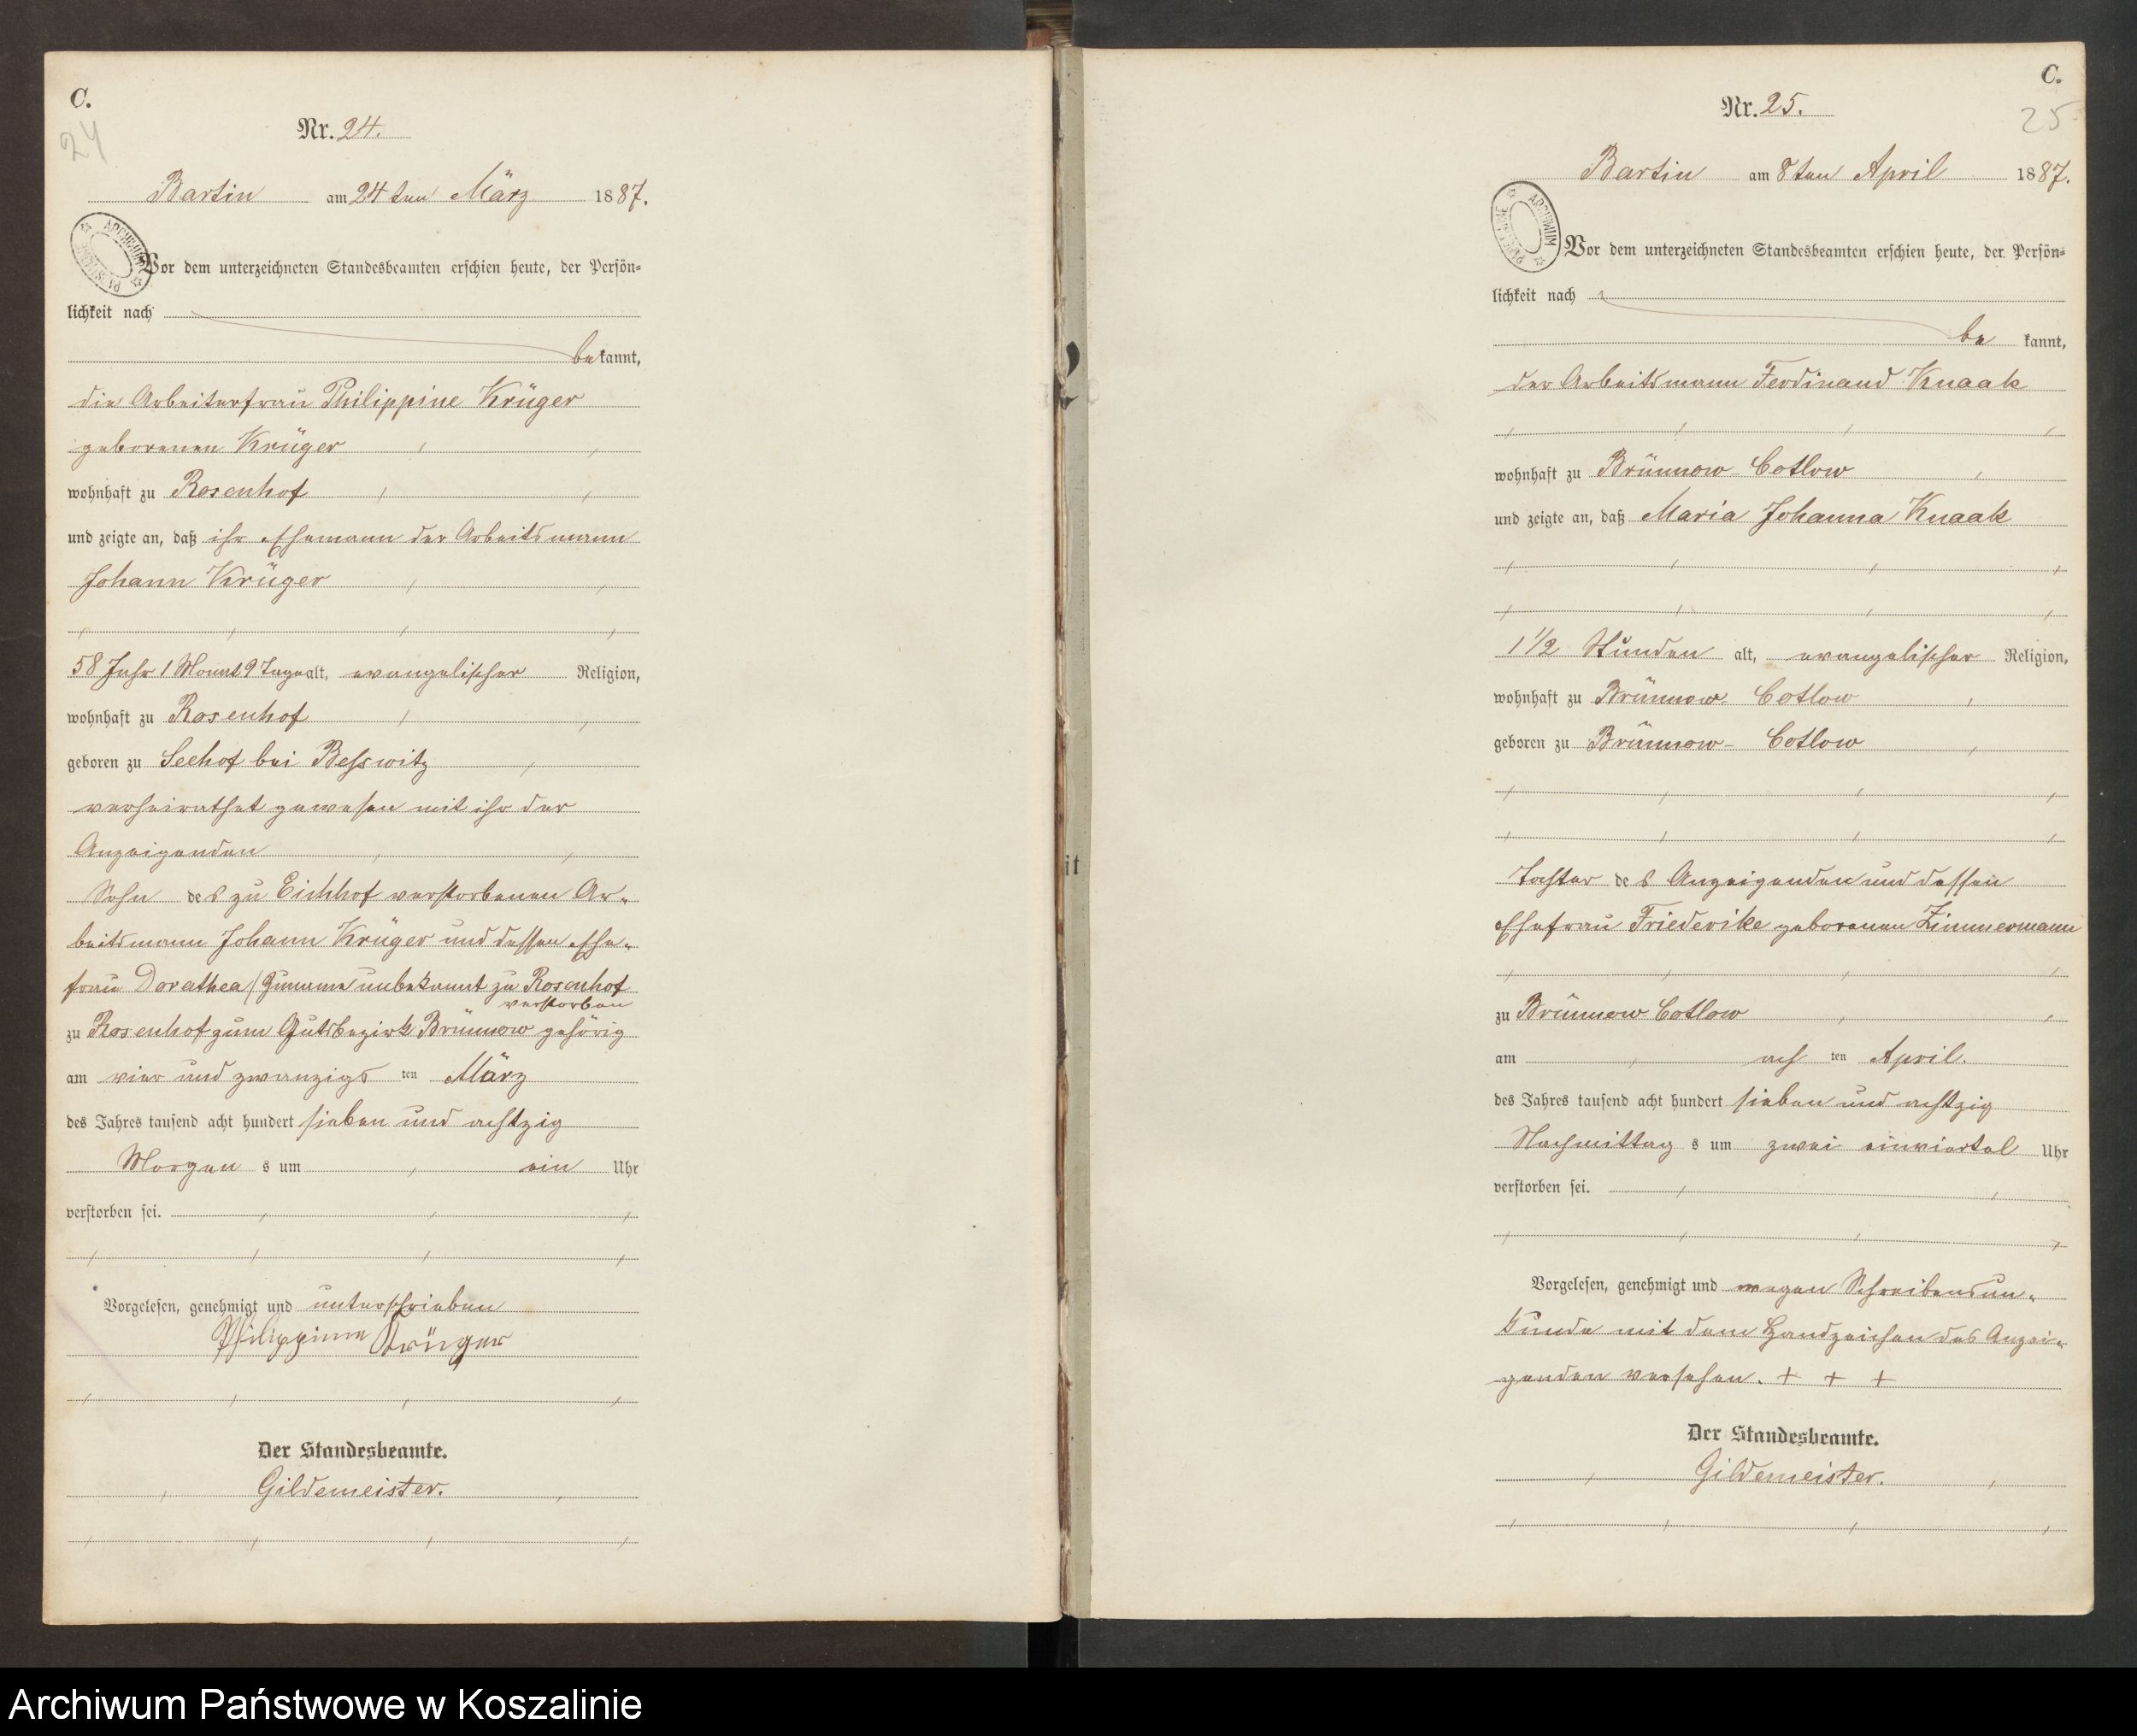 C.
24
Nr. 24.
Bartin am 24ten März 1887.
Vor dem unterzeichneten Standesbeamten erschien heute, der Persön=
lichkeit nach
bekannt,
die Arbeiterfrau Philippine Krüger
geborenen Krüger
wohnhaft zu Rosenhof
und zeigte an, daß ihr Ehemann der Arbeitsmann
Johann Krüger
58 Jahr 1 Monat 9 Tage alt, evangelischer Religion,
wohnhaft zu Rosenhof
geboren zu Seehof bei Besswitz
verheirathet gewesen mit ihr der
Anzeigenden
Sohn des zu Eichhof verstorbenen Ar=
beitsmann Johann Krüger und dessen Ehe=
frau Dorathea unbekannt zu Rosenhof
verstorben
zu Rosenhof zum Gutsbezirk Brünnow gehörig
am vier und zwanzigs ten März
des Jahres tausend acht hundert sieben und achtzig
Morgen s um ein Uhr
verstorben sei.
Vorgelesen, genehmigt und unterschrieben
Philippine Krüger
Der Standesbeamte.
Gildemeister.
C.
25
Nr. 25.
Bartin am 8ten April 1887.
ARCHIWUM
Vor dem unterzeichneten Standesbeamten erschien heute, der Persön=
lichkeit nach
be kannt,
der Arbeitsmann Ferdinand Knaak
wohnhaft zu Brünnow-Cotlow
und zeigte an, daß Maria Johanna Knaak
1 1/2 Stunden alt, evangelischer Religion,
wohnhaft zu Brünnow Cotlow
geboren zu Brünnow-Cotlow
Tochter des Anzeigenden und dessen
Ehefrau Friederike geborenen Zimmermann
zu Brünnow Cotlow
am ach ten April.
des Jahres tausend acht hundert sieben und achtzig
Nachmittag s um zwei einviertel Uhr
verstorben sei.
Vorgelesen, genehmigt und wegen Schreibensun=
kunde mit dem Handzeichen des Anzei=
genden versehen. + + +
Der Standesbeamte.
Gildemeister.
it
Archiwum Państwowe w Koszalinie